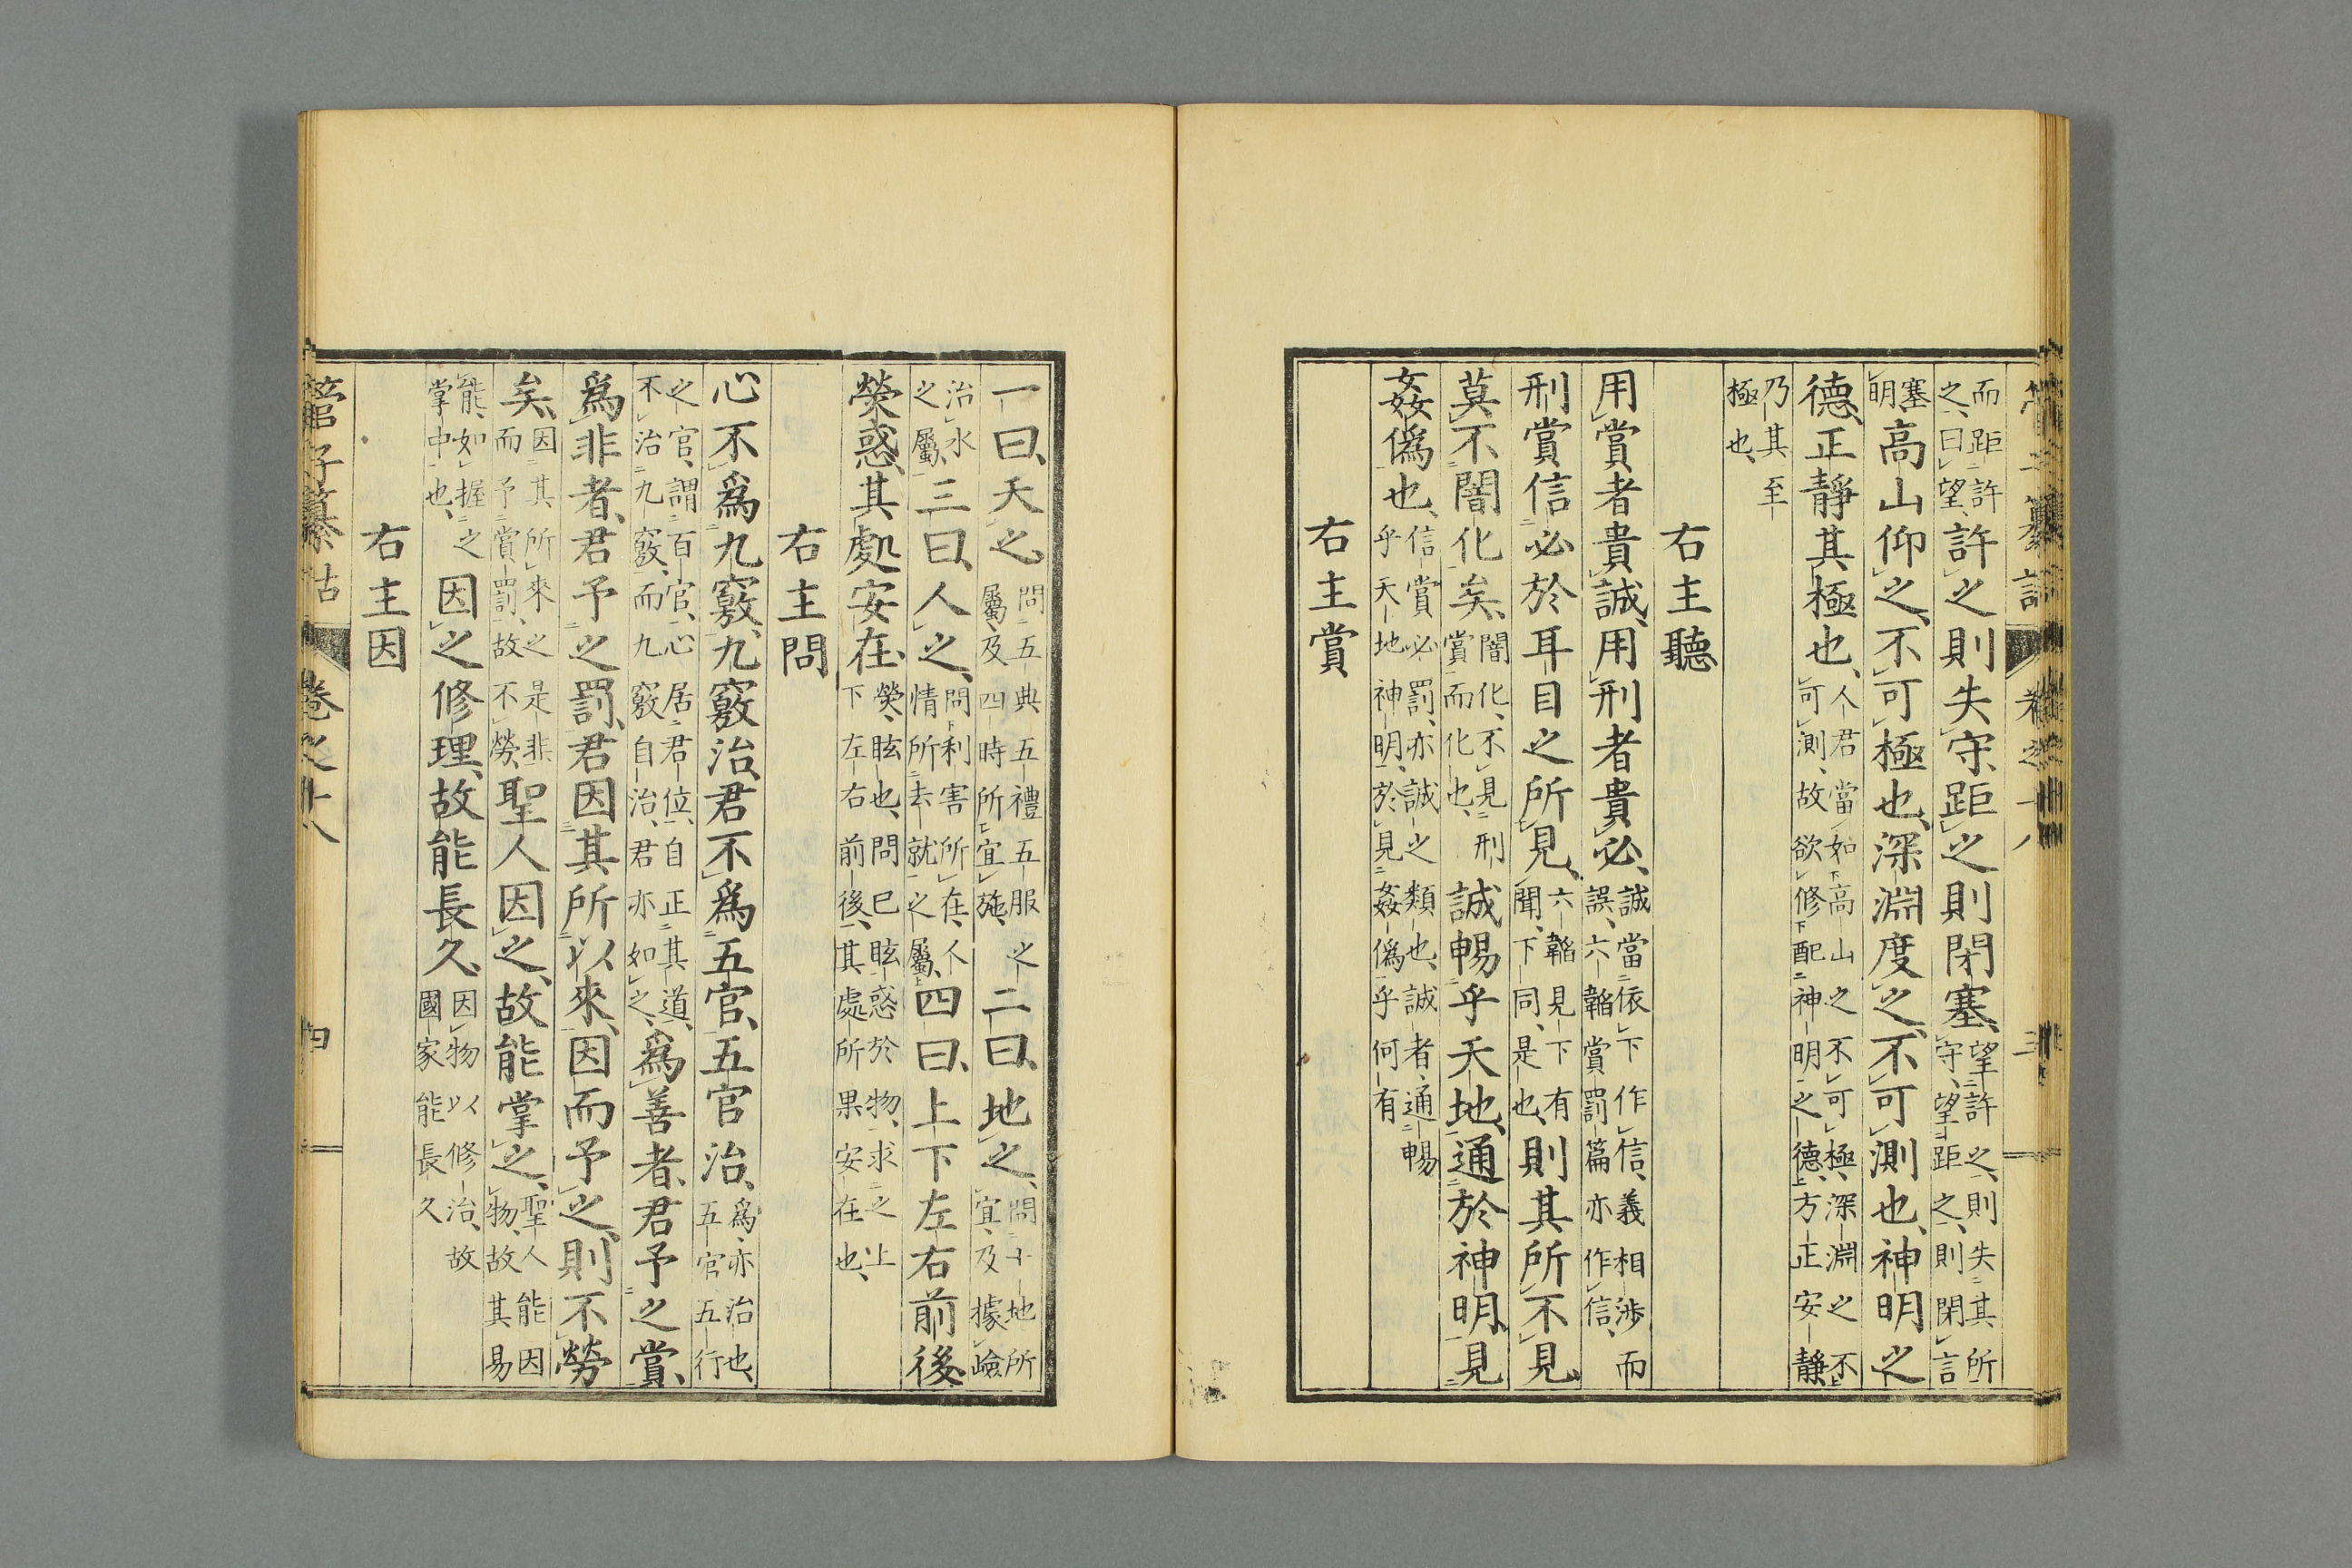 而距許之曰望許之則失守距之則閉塞望許之則失其所守望距之則閉言
塞明高山仰之不可極也深淵度之不可測也神明之
德正靜其極也人君當如高山之不可極深淵之不可測故欲修配神明之德方正安靜
乃其至極也
右主聽
用賞者貴誠用刑者貴必誠當依下作信義相涉而誤六韜賞罰篇亦作信
刑賞信必於耳目之所見六韜見下有聞下同是也則其所不見
莫不闇化矣闇化不見刑賞而化也誠暢乎天地通於神明見
姦僞也信賞必罰亦誠之類也誠者通暢乎天地神明於見姦僞乎何有
右主賞
一曰天之問五典五禮五服之屬及四時所宜施二曰地之問土地所宜及據嶮
治水之屬三曰人之問利害所在人情所去就之屬四曰上下左右前後
熒惑其處安在熒眩也問已眩惑於物求之上下左右前後其處所果安在也
右主問
心不爲九竅九竅治君不爲五官五官治爲亦治也五官五行
之官謂百官心居君位自正其道不治九竅而九竅自治君亦如之爲善者君予之賞
爲非者君予之罰君因其所以來因而予之則不勞
矣因其所來之是非而予賞罰故不勞聖人因之故能掌之聖人能因物故其易
能如握之掌中也因之修理故能長久因物以修治故國家能長久
右主因
管子纂詁 卷之十八 四